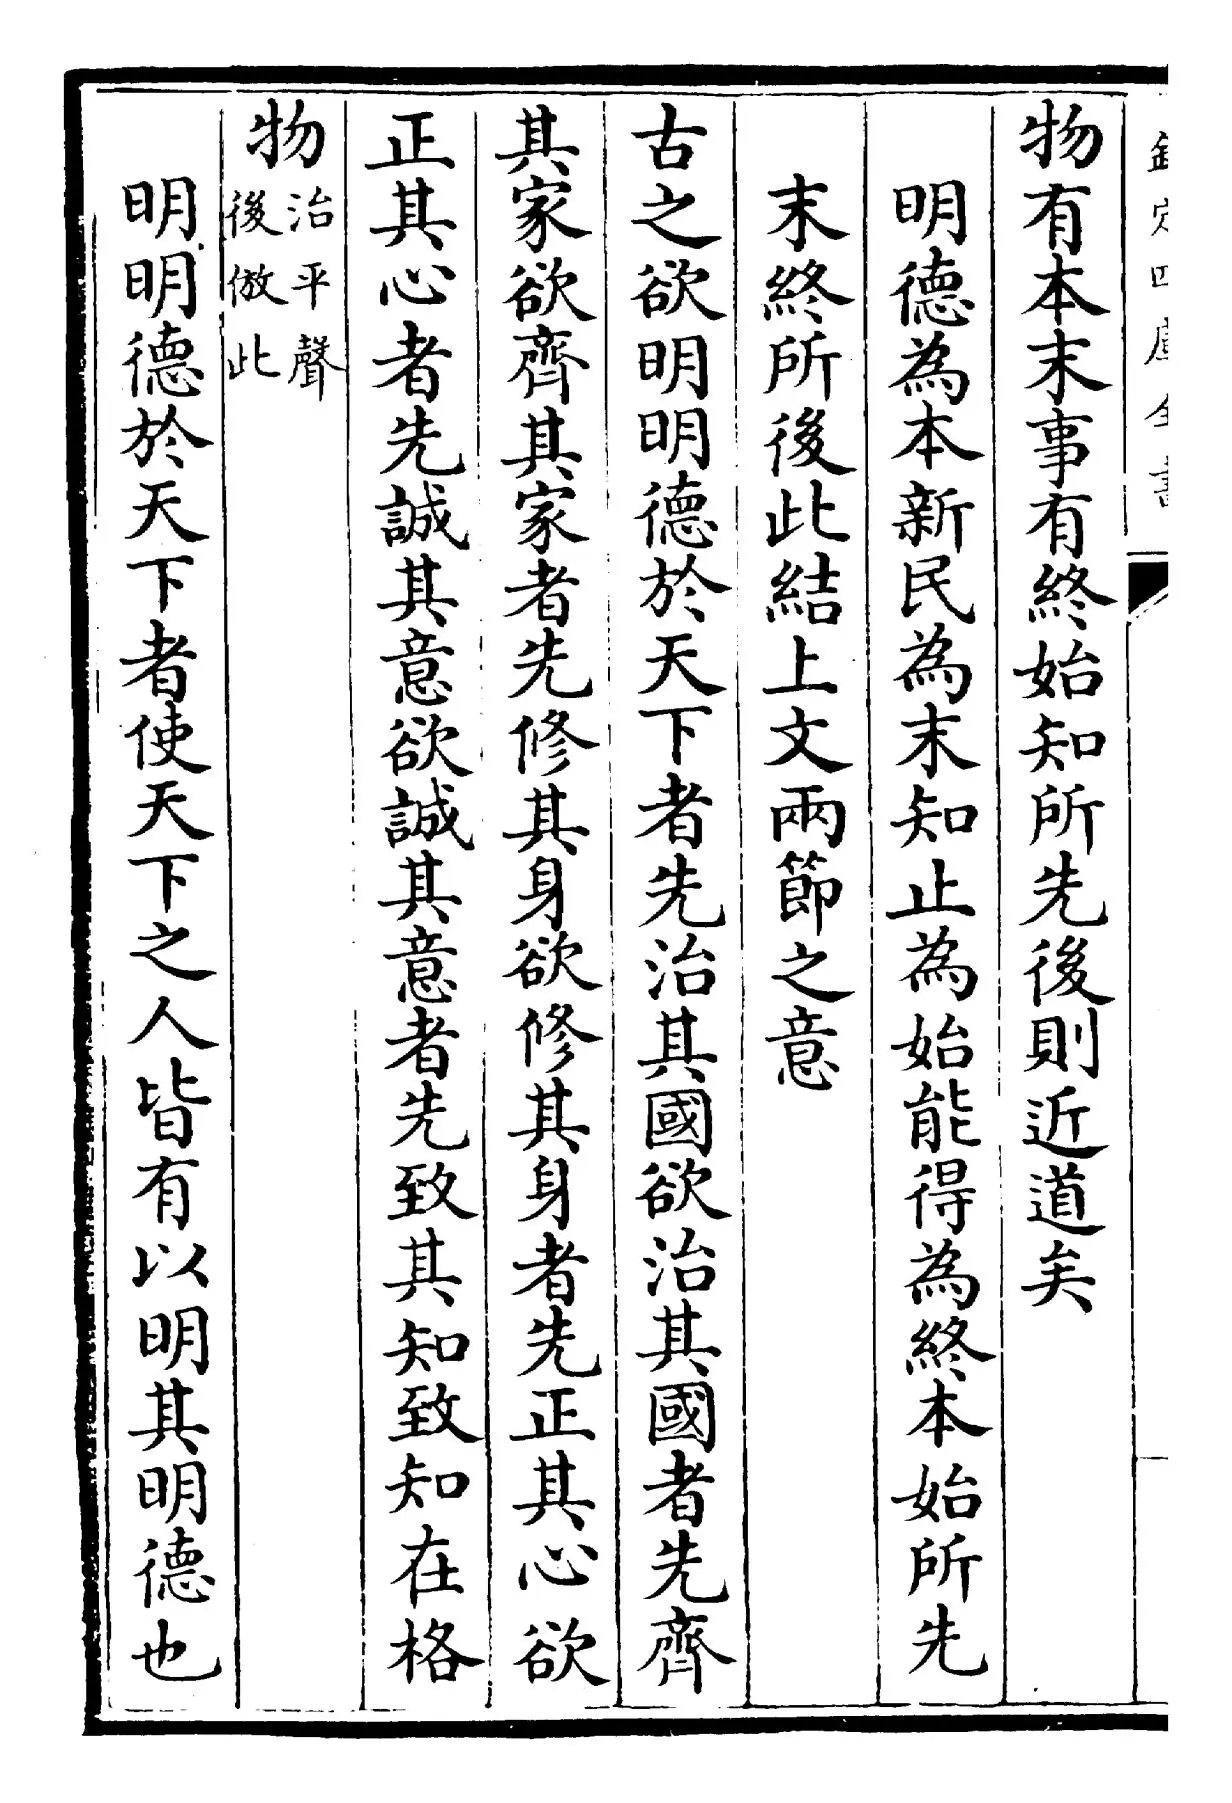 欽定四庫全書
物有本末事有終始知所先後則近道矣
明德為本新民為末知止為始能得為終本始所先
末終所後此結上文兩節之意
古之欲明明德於天下者先治其國欲治其國者先齊
其家欲齊其家者先修其身欲修其身者先正其心欲
正其心者先誠其意欲誠其意者先致其知致知在格
物治平聲
後倣此
明明德於天下者使天下之人皆有以明其明德也